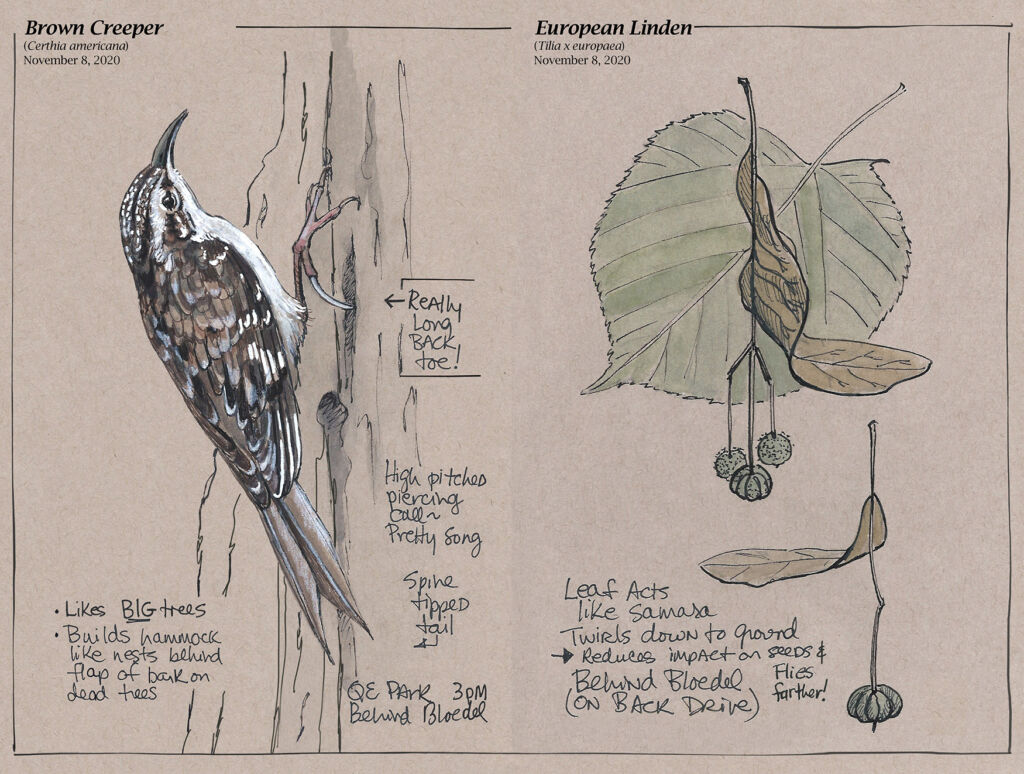 Brown Creeper
(Certhia americana)
November 8, 2020
← Really
Long
Back
toe!
High pitched
piercing
call~
Pretty song
Spine
tipped
tail
• Likes BIG trees
• Builds hammock
like nests behind
flap of bark on
dead trees
QE Park 3pm
Behind Bloedel
European Linden
(Tilia x europaea)
November 8, 2020
Leaf Acts
like samara
Twirls down to ground
→ Reduces impact on seeds &
Flies
farther!
Behind Bloedel
(on Back Drive)